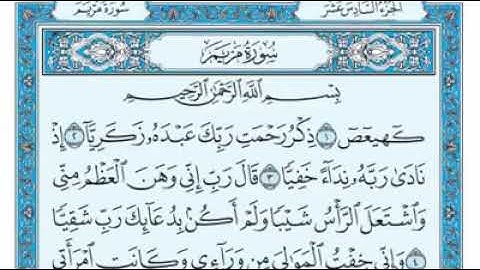 الجزء السادس عشر
سورة مريم
سُورَةُ مَرۡيَمَ
بِسۡمِ ٱللَّهِ ٱلرَّحۡمَٰنِ ٱلرَّحِيمِ
كٓهيعٓصٓ ١ ذِكۡرُ رَحۡمَتِ رَبِّكَ عَبۡدَهُۥ زَكَرِيَّآ ٢ إِذۡ
نَادَىٰ رَبَّهُۥ نِدَآءً خَفِيّٗا ٣ قَالَ رَبِّ إِنِّي وَهَنَ ٱلۡعَظۡمُ مِنِّي
وَٱشۡتَعَلَ ٱلرَّأۡسُ شَيۡبٗا وَلَمۡ أَكُنۢ بِدُعَآئِكَ رَبِّ شَقِيّٗا
٤ وَإِنِّي خِفۡتُ ٱلۡمَوَٰلِيَ مِن وَرَآءِي وَكَانَتِ ٱمۡرَأَتِي